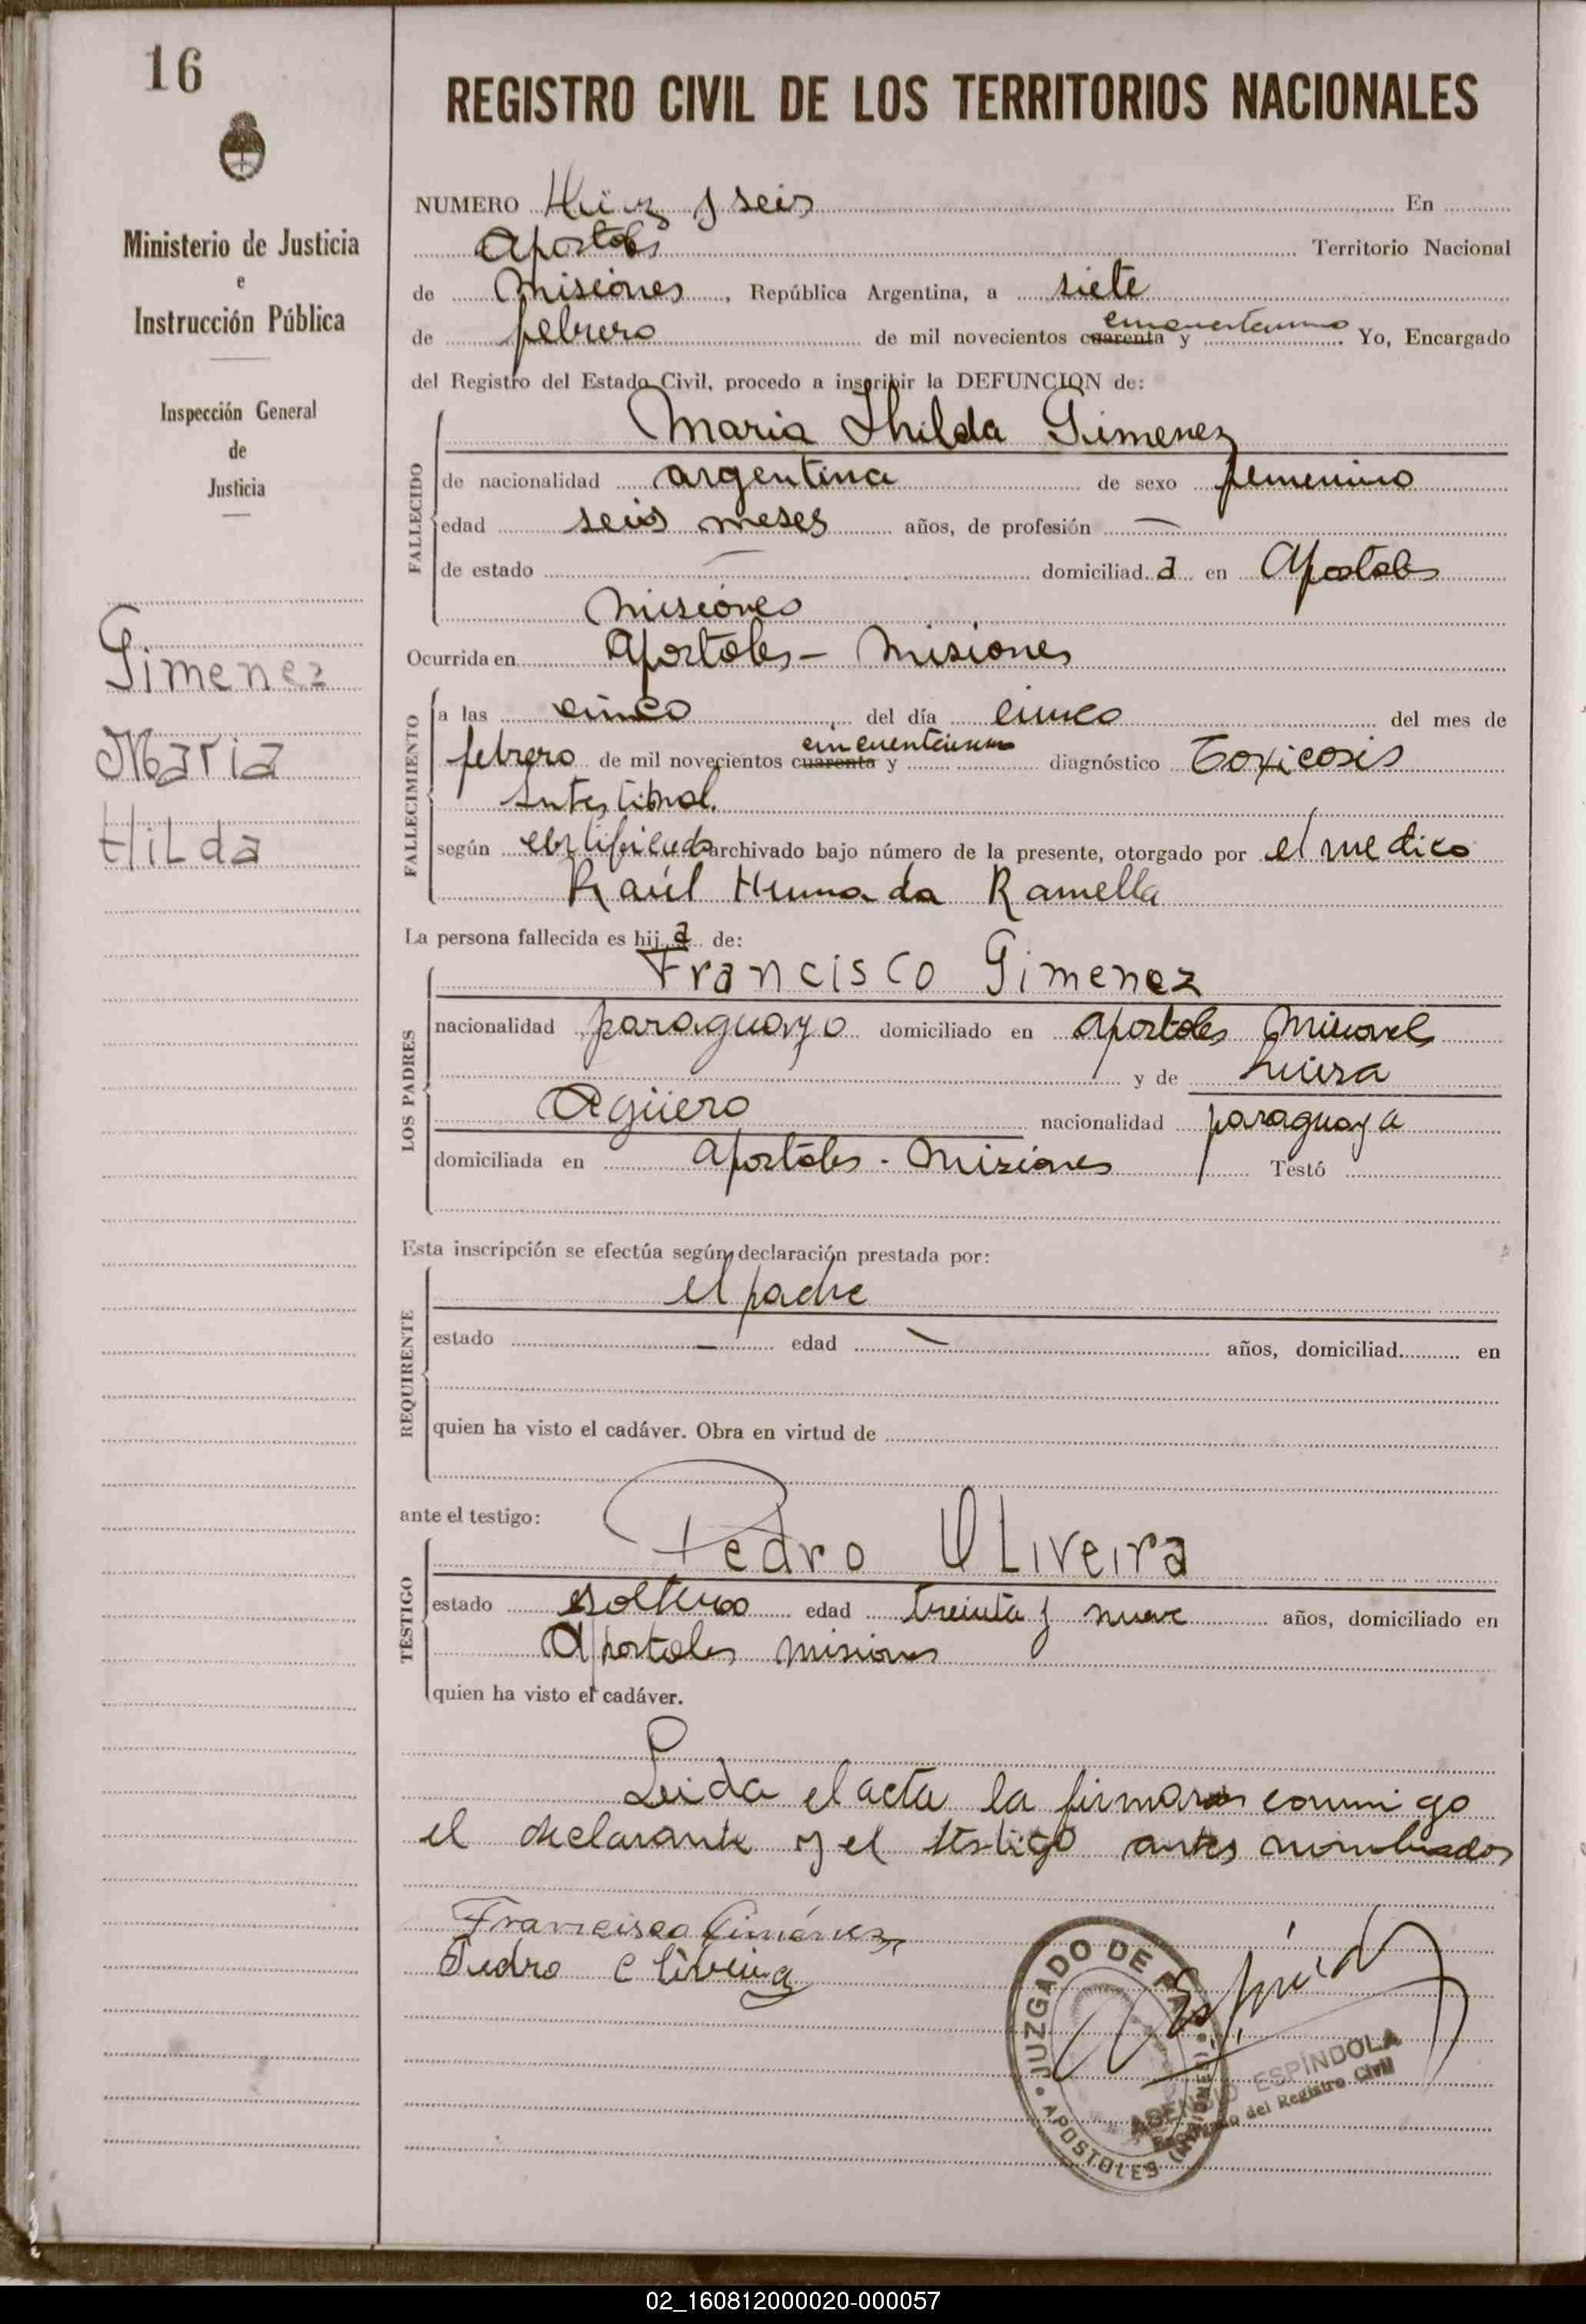 16
REGISTRO CIVIL DE LOS TERRITORIOS NACIONALES
Ministerio de Justicia
e
Instrucción Pública
Inspección General
de
Justicia
Gimenez
Maria
Hilda
NUMERO y seis En
Apostoles Territorio Nacional
de Misiones, República Argentina, a siete
de febrero de mil novecientos cuarenta y cincuentaiuno Yo, Encargado
del Registro del Estado Civil, procedo a inscribir la DEFUNCION de:
FALLECIDO
Maria Hilda Gimenez
de nacionalidad argentina de sexo femenino
edad seis meses años, de profesión —
de estado — domiciliad a en Apostoles
Misiones
Ocurrida en Apostoles - Misiones
FALLECIMIENTO
a las cinco, del día cinco del mes de
febrero de mil novecientos cuarenta y cincuentaiuno diagnóstico Toxicosis
intestinal.
según certificado archivado bajo número de la presente, otorgado por el medico
Raúl Ramella
La persona fallecida es hij a de:
LOS PADRES
Francisco Gimenez
nacionalidad paraguayo domiciliado en Apostoles Misiones
y de Luisa
Agüero nacionalidad paraguaya
domiciliada en Apostoles - Misiones Testó
Esta inscripción se efectúa según declaración prestada por:
REQUIRENTE
el padre
estado — edad — años, domiciliad en
quien ha visto el cadáver. Obra en virtud de
ante el testigo:
TESTIGO
Pedro Oliveira
estado soltero edad treinta y nueve años, domiciliado en
Apostoles Misiones
quien ha visto el cadáver.
Leida el acta la firmaron conmigo
el declarante y el testigo antes nombrados
Francisco Giménez
Pedro Oliveira
JUZGADO DE PAZ
APOSTOLES (MISIONES)
ASENCIO ESPÍNDOLA
Encargado del Registro Civil
02_160812000020-000057